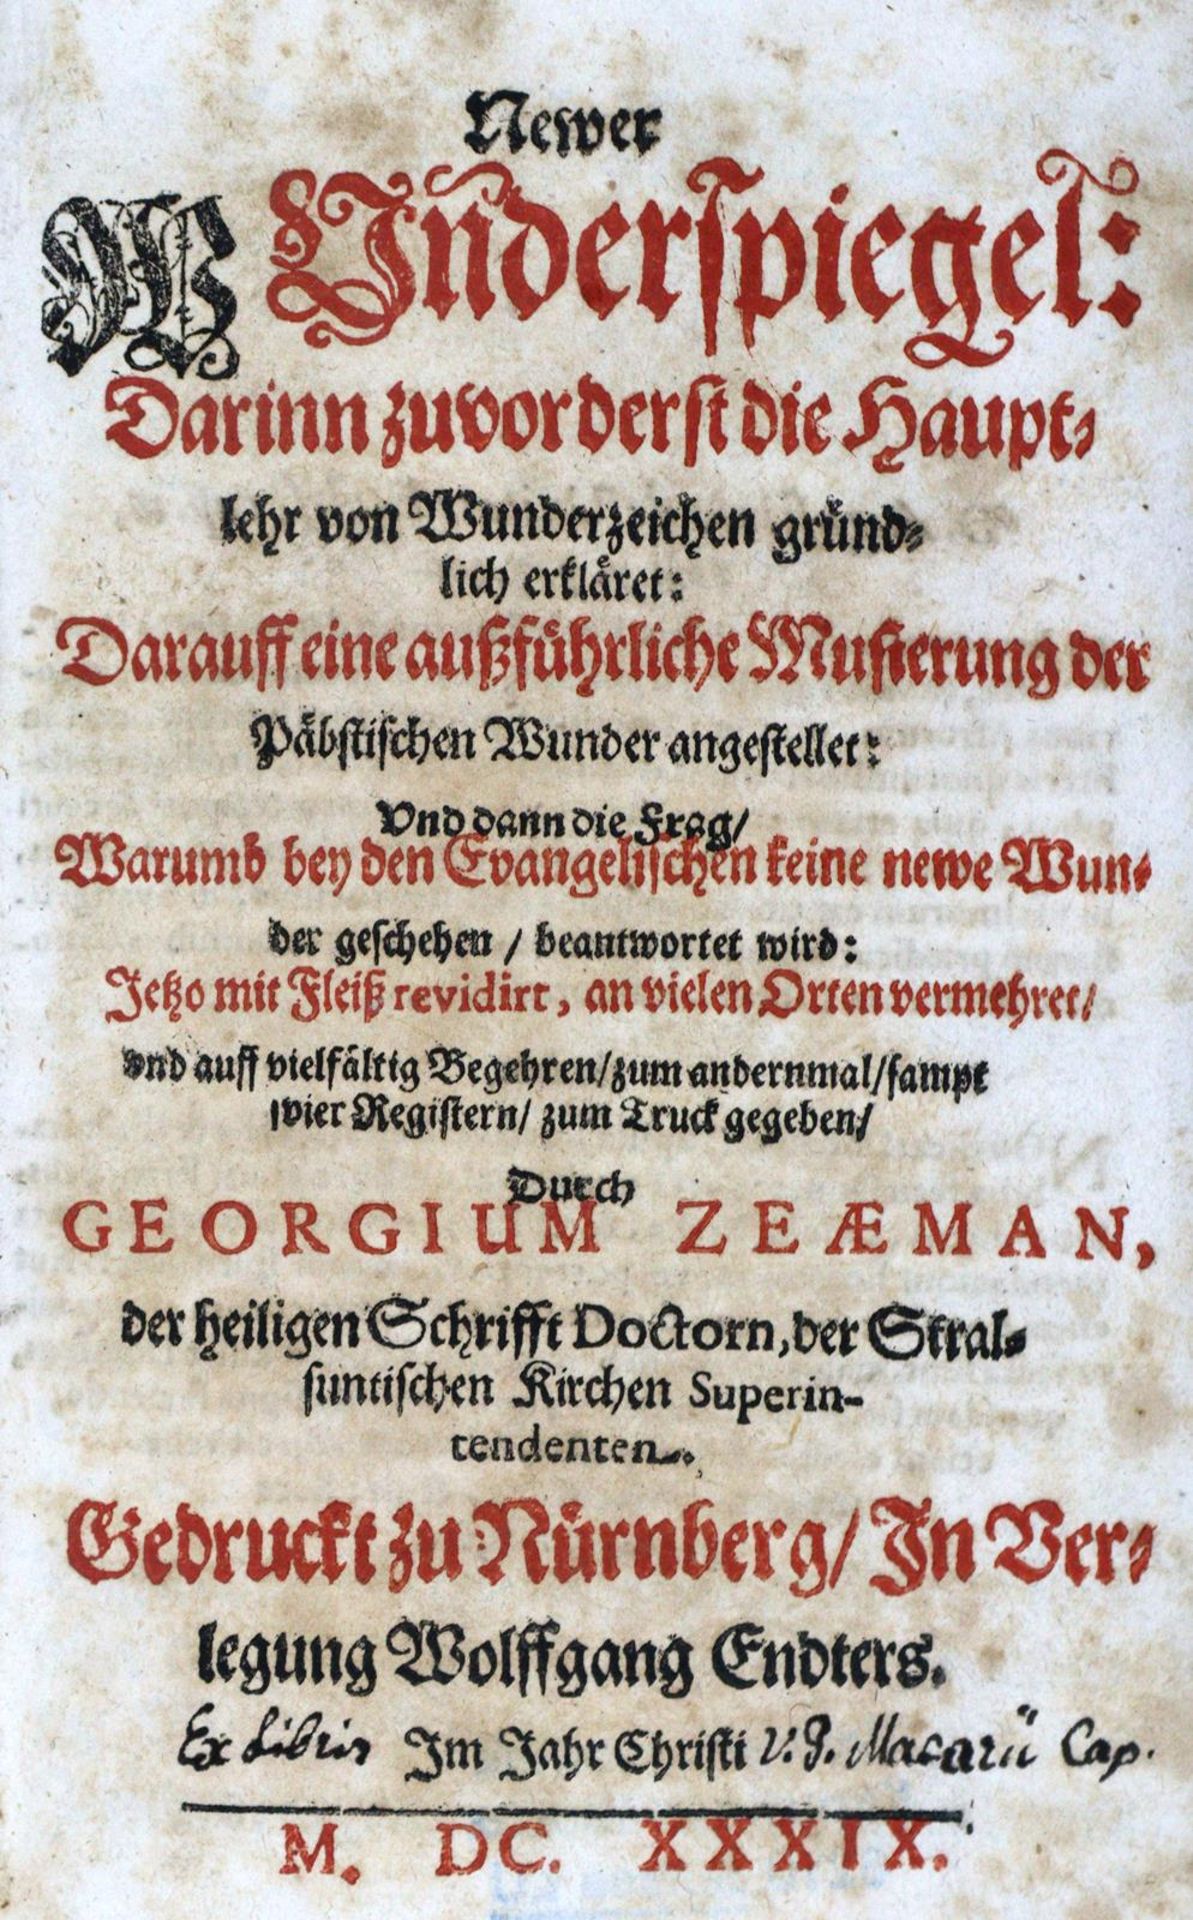 Newer
WUnderspiegel:
Darinn zuvorderst die Haupt-
lehr von Wunderzeichen gründ-
lich erkläret:
Darauff eine außführliche Musterung der
Päbstischen Wunder angestellet:
Vnd dann die Frag/
Warumb bey den Evangelischen keine newe Wun-
der geschehen / beantwortet wird:
Jetzo mit Fleiß revidirt, an vielen Orten vermehret/
vnd auff vielfältig Begehren/zum andernmal/sampt
vier Registern/ zum Truck gegeben/
Durch
GEORGIUM ZEÆMAN,
der heiligen Schrifft Doctorn, der Stral-
suntischen Kirchen Superin-
tendenten.
Gedruckt zu Nürnberg/ In Ver-
legung Wolffgang Endters.
Ex Libris Im Jahr Christi V. P. Macarii Cap.
M. DC. XXXIX.